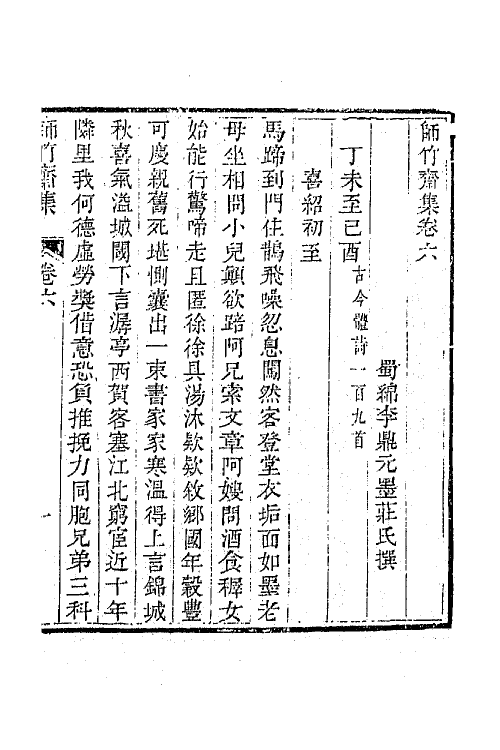 師竹齋集卷六
蜀綿李鼎元墨莊氏撰
丁未至己酉古今體詩一百九首
喜紹初至
馬蹄到門住鵲飛噪忽息闖然客登堂衣垢面如墨老
母坐相問小兒顛欲踣阿兄索文章阿嫂問酒食穉女
始能行驚啼走且匿徐徐具湯沐欵欵敘鄉國年穀豐
可慶親舊死堪惻囊出一束書家家寒溫得上言錦城
秋喜氣溢城闉下言潺亭西賀客塞江北窮宦近十年
隣里我何德虛勞獎借意恐負推挽力同胞兄弟三科
師竹齋集
卷六
一